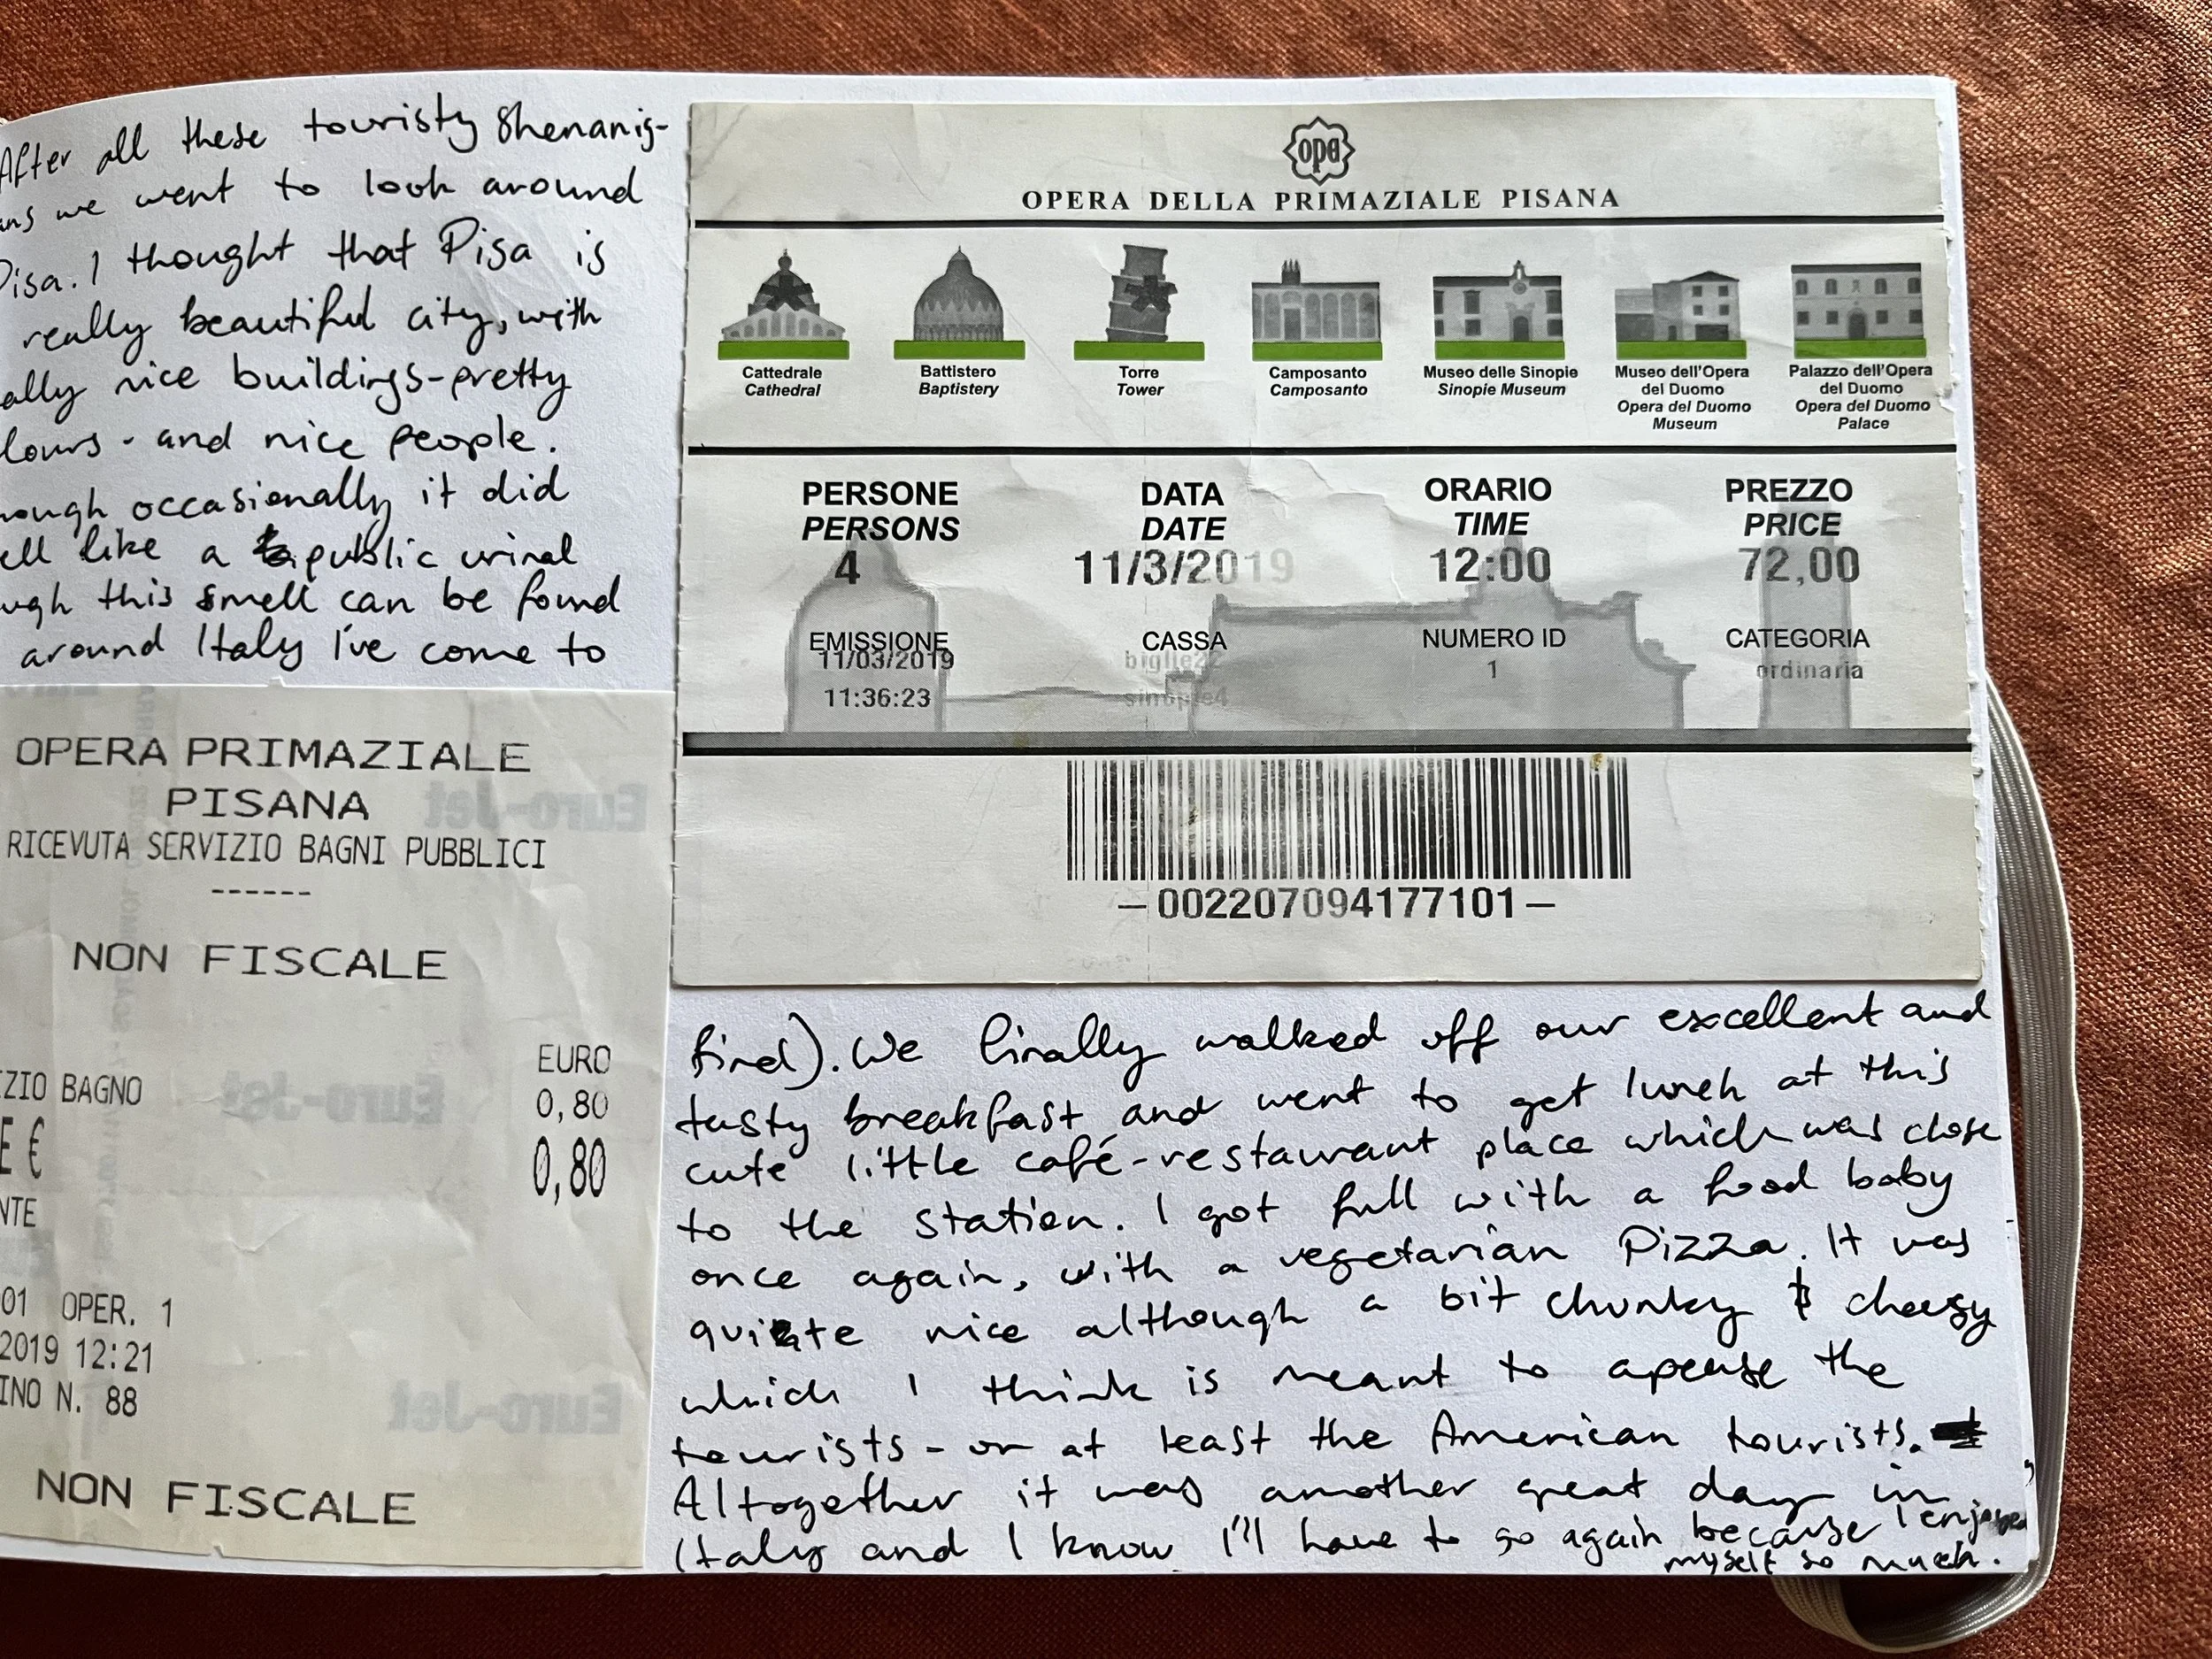 After all these touristy shenanig-
ans we went to look around
Pisa. I thought that Pisa is
really beautiful city, with
ally nice buildings-pretty
lours - and nice people.
hough occasionally it did
ell like a public urinal
ugh this smell can be found
around Italy I've come to
OPERA PRIMAZIALE
PISANA
RICEVUTA SERVIZIO BAGNI PUBBLICI
------
NON FISCALE
EURO
ZIO BAGNO 0,80
E € 0,80
NTE
01 OPER. 1
2019 12:21
INO N. 88
NON FISCALE
Euro-Jet
Euro-Jet
Euro-Jet
opa
OPERA DELLA PRIMAZIALE PISANA
Cattedrale
Cathedral
Battistero
Baptistery
Torre
Tower
Camposanto
Camposanto
Museo delle Sinopie
Sinopie Museum
Museo dell'Opera
del Duomo
Opera del Duomo
Museum
Palazzo dell'Opera
del Duomo
Opera del Duomo
Palace
PERSONE DATA ORARIO PREZZO
PERSONS DATE TIME PRICE
4 11/3/2019 12:00 72,00
EMISSIONE CASSA NUMERO ID CATEGORIA
11/03/2019 biglie22 1 ordinaria
11:36:23 sinopie4
—002207094177101—
find). We finally walked off our excellent and
tasty breakfast and went to get lunch at this
cute little café-restaurant place which was close
to the station. I got full with a food baby
once again, with a vegetarian Pizza. It was
quite nice although a bit chunky & cheesy
which I think is meant to apease the
tourists - or at least the American tourists.
Altogether it was another great day in
Italy and I know I'll have to go again because I enjoyed
myself so much.